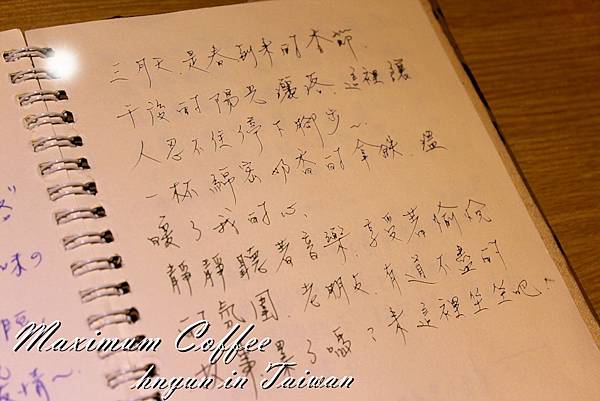 三月天,是春到來的季節.
午後的陽光灑落.這裡讓
人忍不住停下腳步~
一杯綿密奶香的拿鐵.溫
暖了我的心.
靜靜聽著音樂.享受著愉悅
的氛圍.老朋友.有道不盡的
故事.累了嗎?來這裡坐坐吧!
味の
情~
Maximum Coffee
hnyun in Taiwan